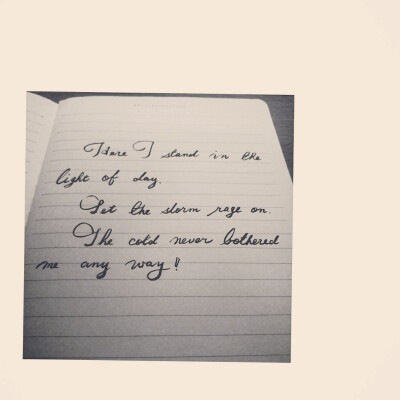 Here I stand in the
light of day.
Let the storm rage on.
The cold never bothered
me any way!!